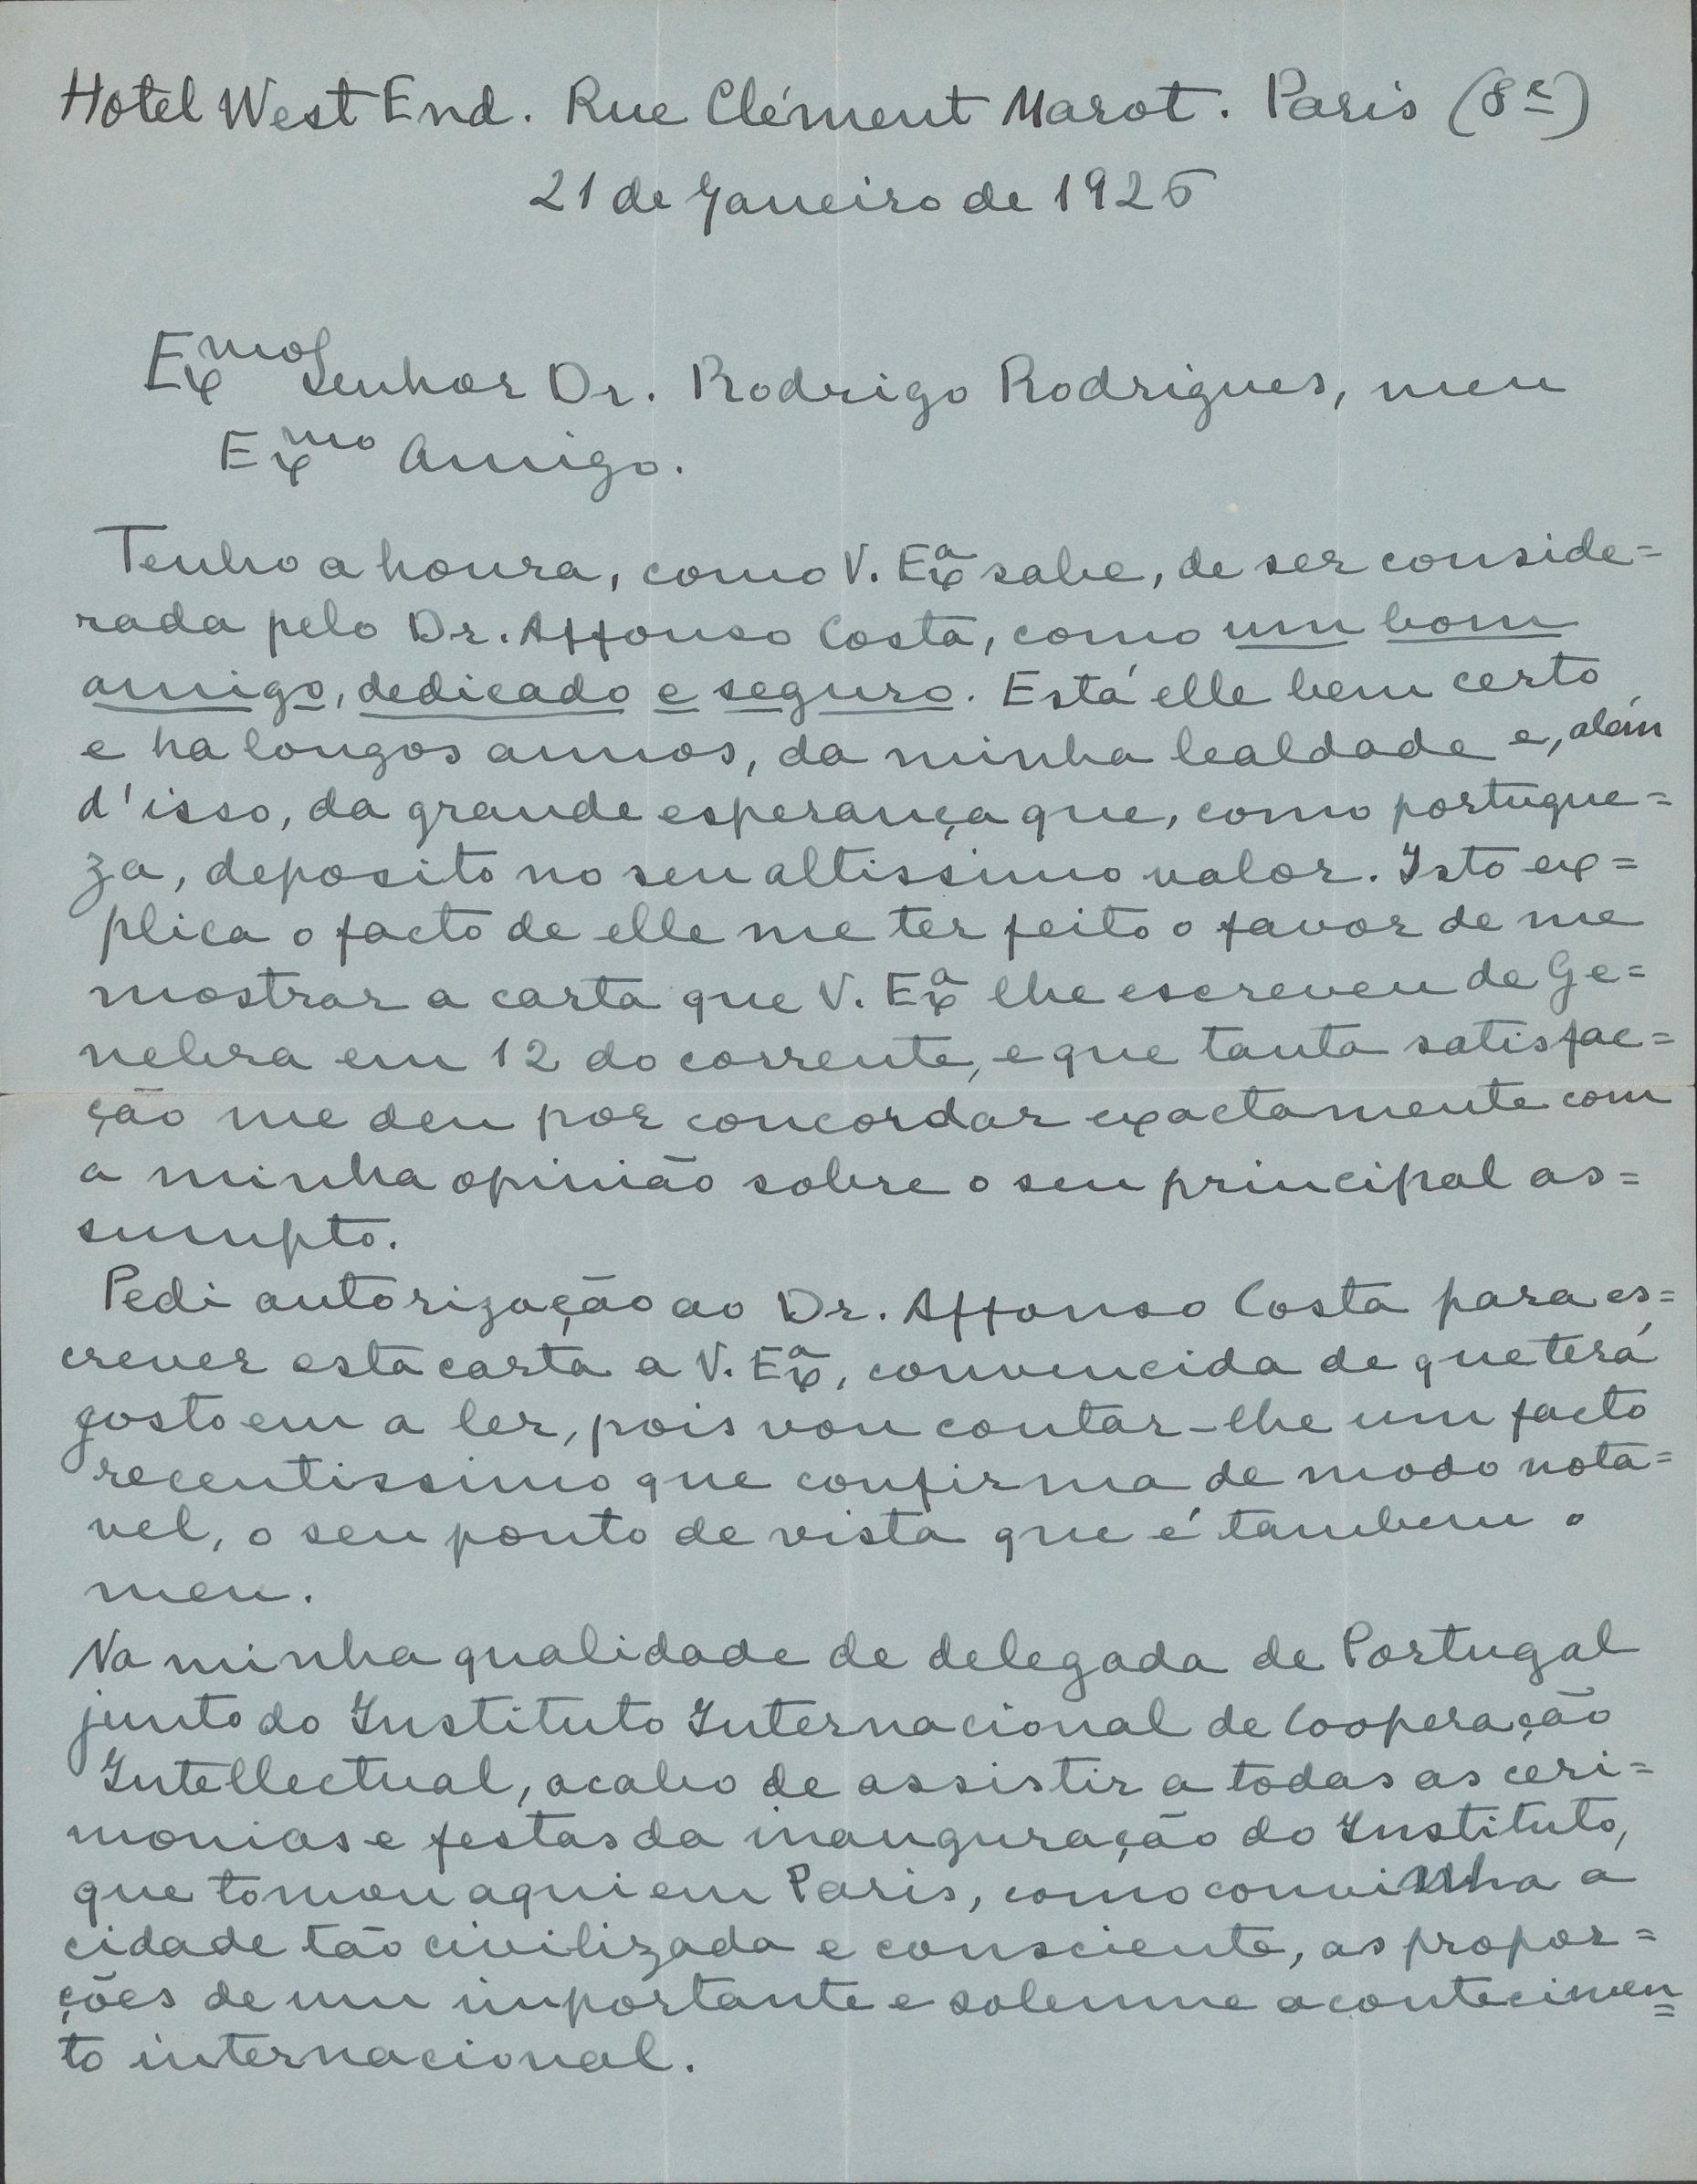 Hotel West End. Rue Clément Marot. Paris (8e)
21 de Janeiro de 1926
Exmo Senhor Dr. Rodrigo Rodrigues, meu
Exmo Amigo.
Tenho a honra, como V. Exa sabe, de ser conside=
rada pelo Dr. Affonso Costa, como um bom
amigo, dedicado e seguro. Está elle bem certo
e ha longos annos, da minha lealdade e, alem
d'isso, da grande esperança que, como portugue=
za, deposito no seu altissimo valor. Isto ex=
plica o facto de elle me ter feito o favor de me
mostrar a carta que V. Exa lhe escreveu de Ge=
nebra em 12 do corrente, e que tanta satisfac=
ção me deu por concordar exactamente com
a minha opinião sobre o seu principal as=
sumpto.
Pedi autorização ao Dr. Affonso Costa para es=
crever esta carta a V. Exa, convencida de que terá
gosto em a ler, pois vou contar-lhe um facto
recentissimo que confirma de modo nota=
vel, o seu ponto de vista que é tambem o
meu.
Na minha qualidade de delegada de Portugal
junto do Instituto Internacional de Cooperação
Intellectual, acabo de assistir a todas as ceri=
monias e festas da inauguração do Instituto,
que tomou aqui em Paris, como convinha a
cidade tão civilizada e consciente, as propor=
ções de um importante e solemne acontecimen=
to internacional.